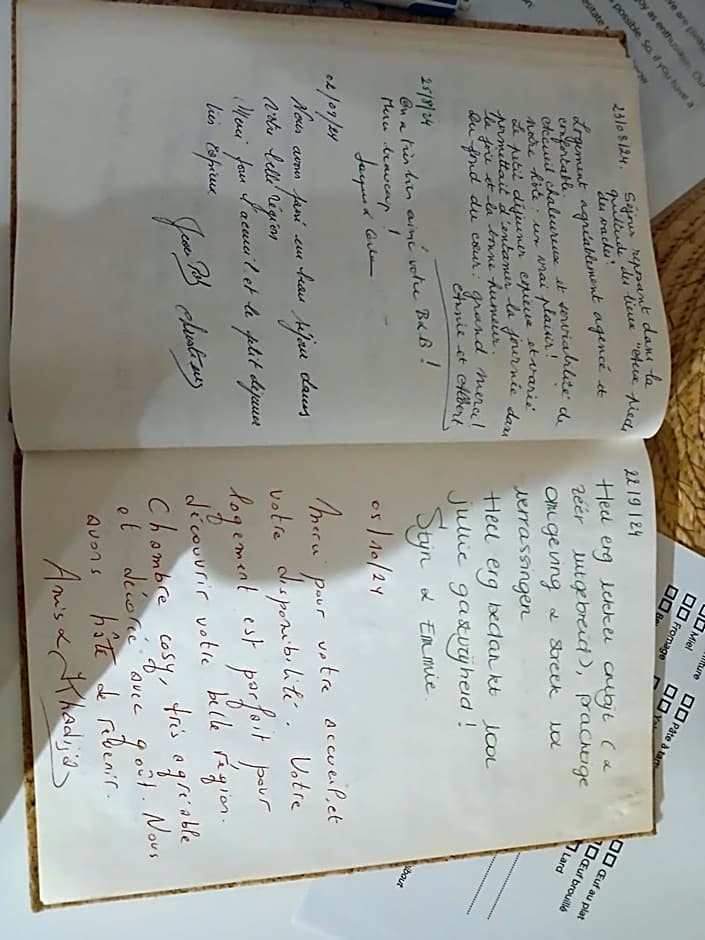 23/08/24. Séjour reposant dans la
quiétude du lieu "Aux pieds
du rucher"
Logement agréablement agencé et
confortable.
Accueil chaleureux et serviabilité de
notre hôte : un vrai plaisir!
Le petit déjeuner copieux et varié
permettait d'entamer la journée dans
la joie et la bonne humeur.
Du fond du cœur : grand merci!
Annie et Albert
25/8/24
On a très bien aimé votre B&B !
Merci beaucoup !
Jacques &
02/09/24
Nous avons passé un beau séjour dans
votre belle région
Merci pour l'accueil et le petit déjeuner
très copieux
22/9/24
Heel erg lekker ontbijt (&
zéér uitgebreid), prachtige
omgeving & streek vol
verrassingen
Heel erg bedankt voor
jullie gastvrijheid!
Stijn & Emmie.
05/10/24
Merci pour votre accueil, et
votre disponibilité. Votre
logement est parfait pour
découvrir votre belle région.
Chambre cosy, très agréable
et décorée avec goût. Nous
avons hâte de revenir.
Anis & Khadija
Miel
Fromage
Pâte à tart
Œuf au plat
Œuf brouillé
Lard